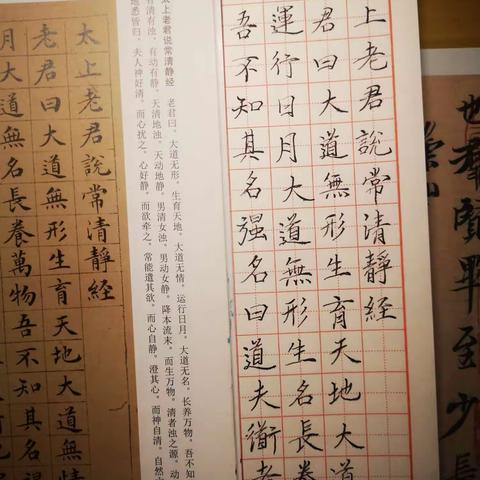 也羣賢畢至少長
上老君說常清靜經
君曰大道無形生育天地大道
運行日月大道無形生名長養
吾不知其名强名曰道夫衜者
太上老君说常清静经　老君曰。大道无形。生育天地。大道无情。运行日月。大道无名。长养万物。吾不知
有清有浊。有动有静。天清地浊。天动地静。男清女浊。男动女静。降本流末。而生万物。清者浊之源。动
地悉皆归。夫人神好清。而心扰之。心好静。而欲牵之。常能遣其欲。而心自静。澄其心。而神自清。自然
太上老君說常清靜経
老君曰大道無形生育天地大道無情
月大道無名長養萬物吾不知其名强